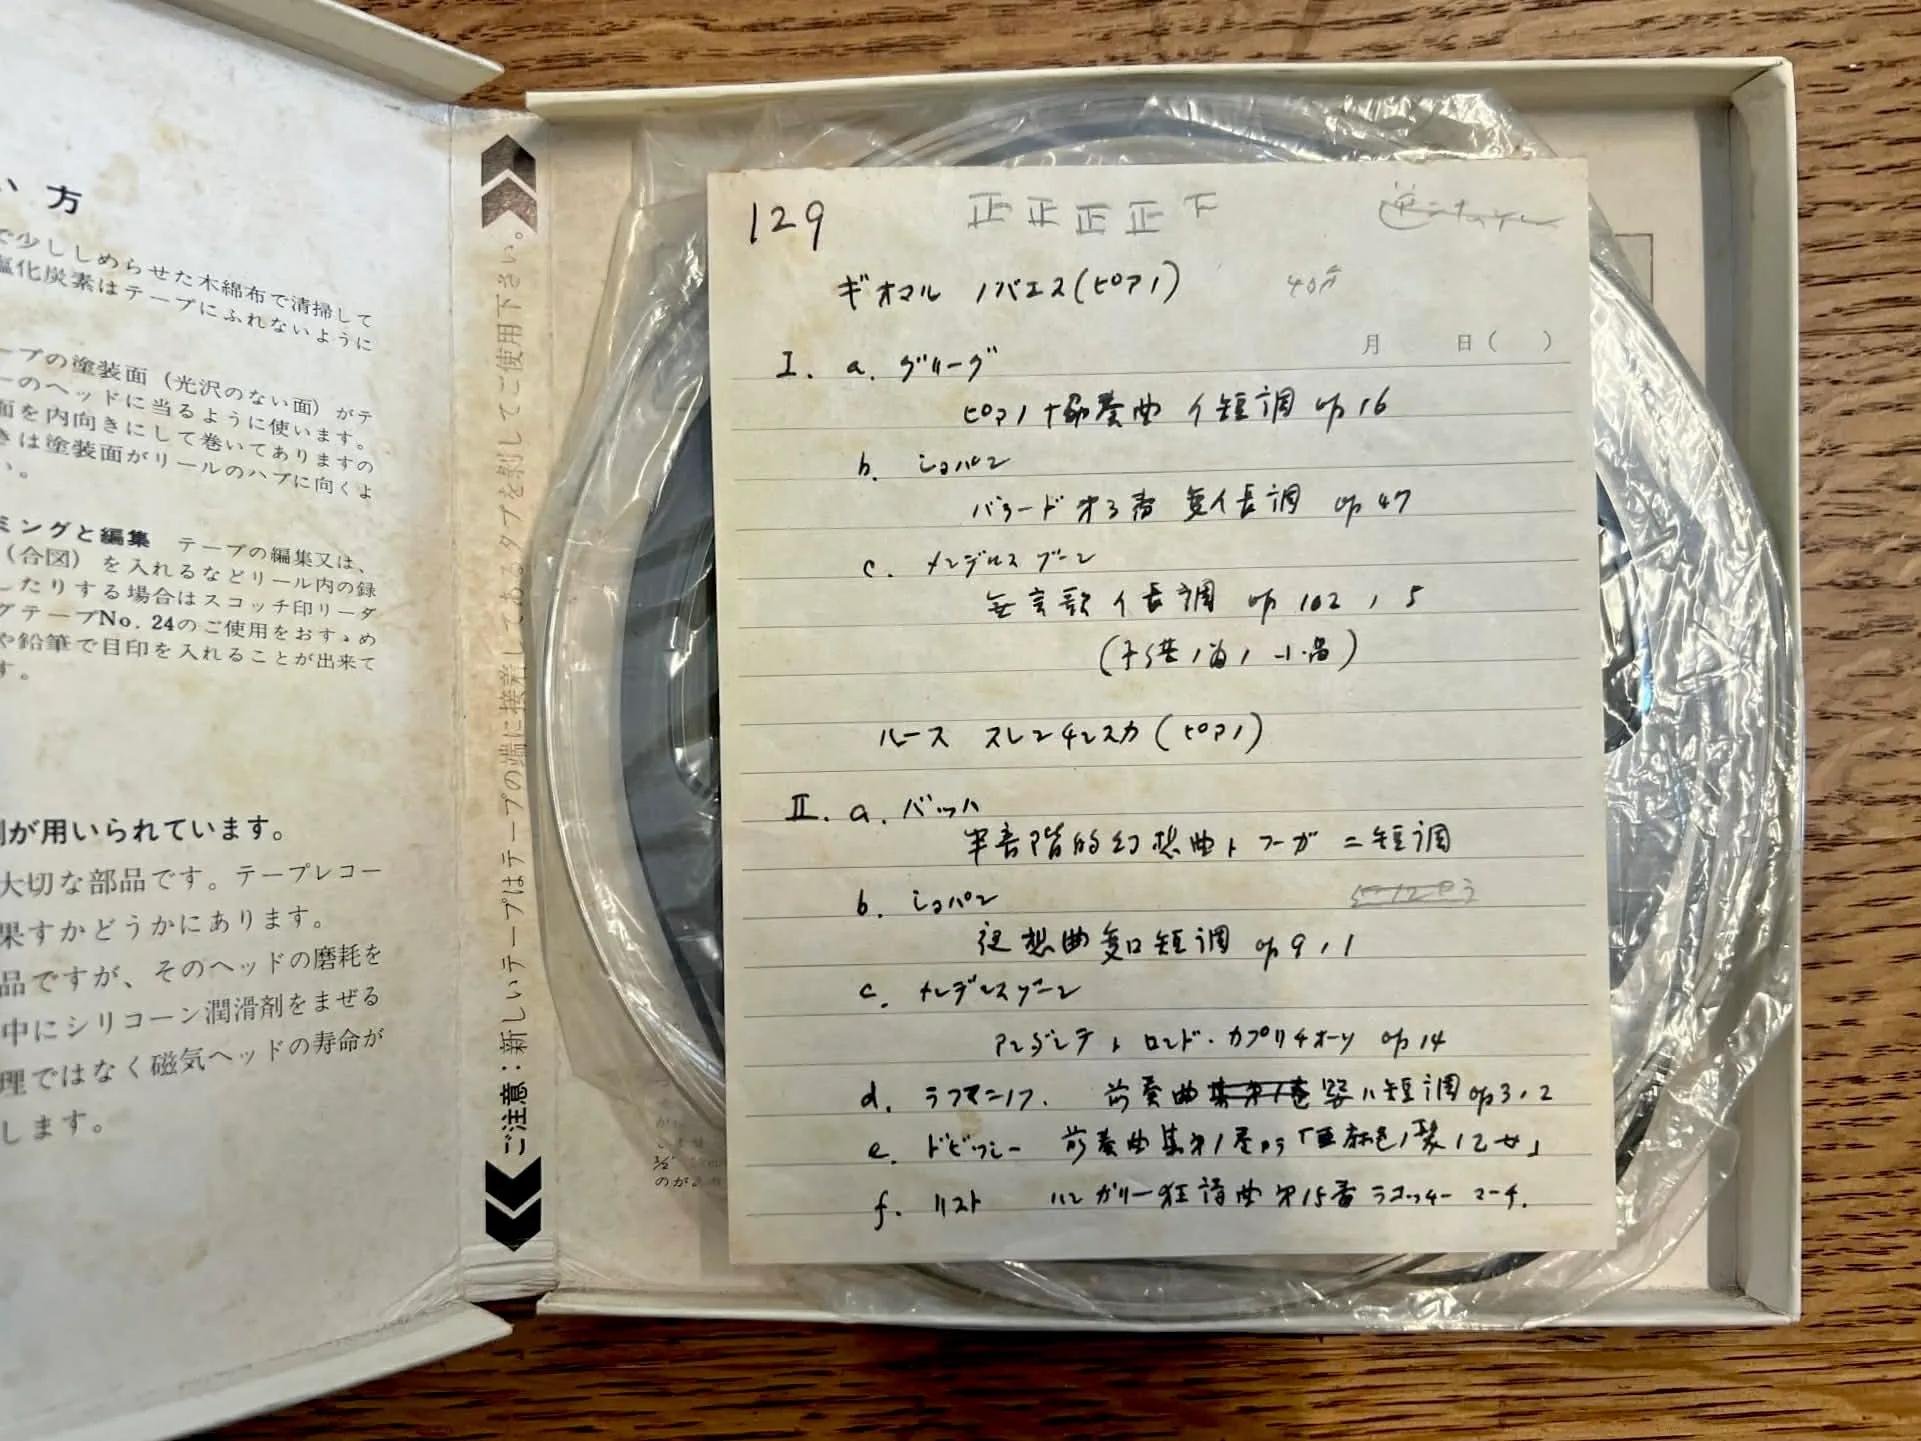 い方
で少ししめらせた木綿布で清掃して
塩化炭素はテープにふれないように
ープの塗装面（光沢のない面）がテ
ーのヘッドに当るように使います。
面を内向きにして巻いてありますの
きは塗装面がリールのハブに向くよ
い。
ミングと編集 テープの編集又は、
（合図）を入れるなどリール内の録
したりする場合はスコッチ印リーダ
グテープNo. 24のご使用をおすゝめ
や鉛筆で目印を入れることが出来て
す。
剤が用いられています。
大切な部品です。テープレコー
果すかどうかにあります。
品ですが、そのヘッドの磨耗を
中にシリコーン潤滑剤をまぜる
理ではなく磁気ヘッドの寿命が
します。
ご注意：新しいテープはテープの端に接着してあるタブを剥してご使用下さい。
129 正正正正下
ギオマル ノバエス(ピアノ) 40分
月 日( )
I. a. グリーグ
ピアノ協奏曲 イ短調 op 16
b. ショパン
バラード オ3番 変イ長調 op 47
c. メンデルスゾーン
無言歌 イ長調 op 102, 5
(子供ノ為ノ小品)
ルース スレンチンスカ(ピアノ)
II. a. バッハ
半音階的幻想曲ト フーガ ニ短調
b. ショパン
夜想曲変ロ短調 op 9, 1
c. メンデルスゾーン
アンダンテ ト ロンド・カプリチオーソ op 14
d. ラフマニノフ. 前奏曲 嬰ハ短調 op 3, 2
e. ドビッシー 前奏曲集オ1巻カラ「亜麻色ノ髪ノ乙女」
f. リスト ハンガリー狂詩曲 オ15番 ラコッキー マーチ.